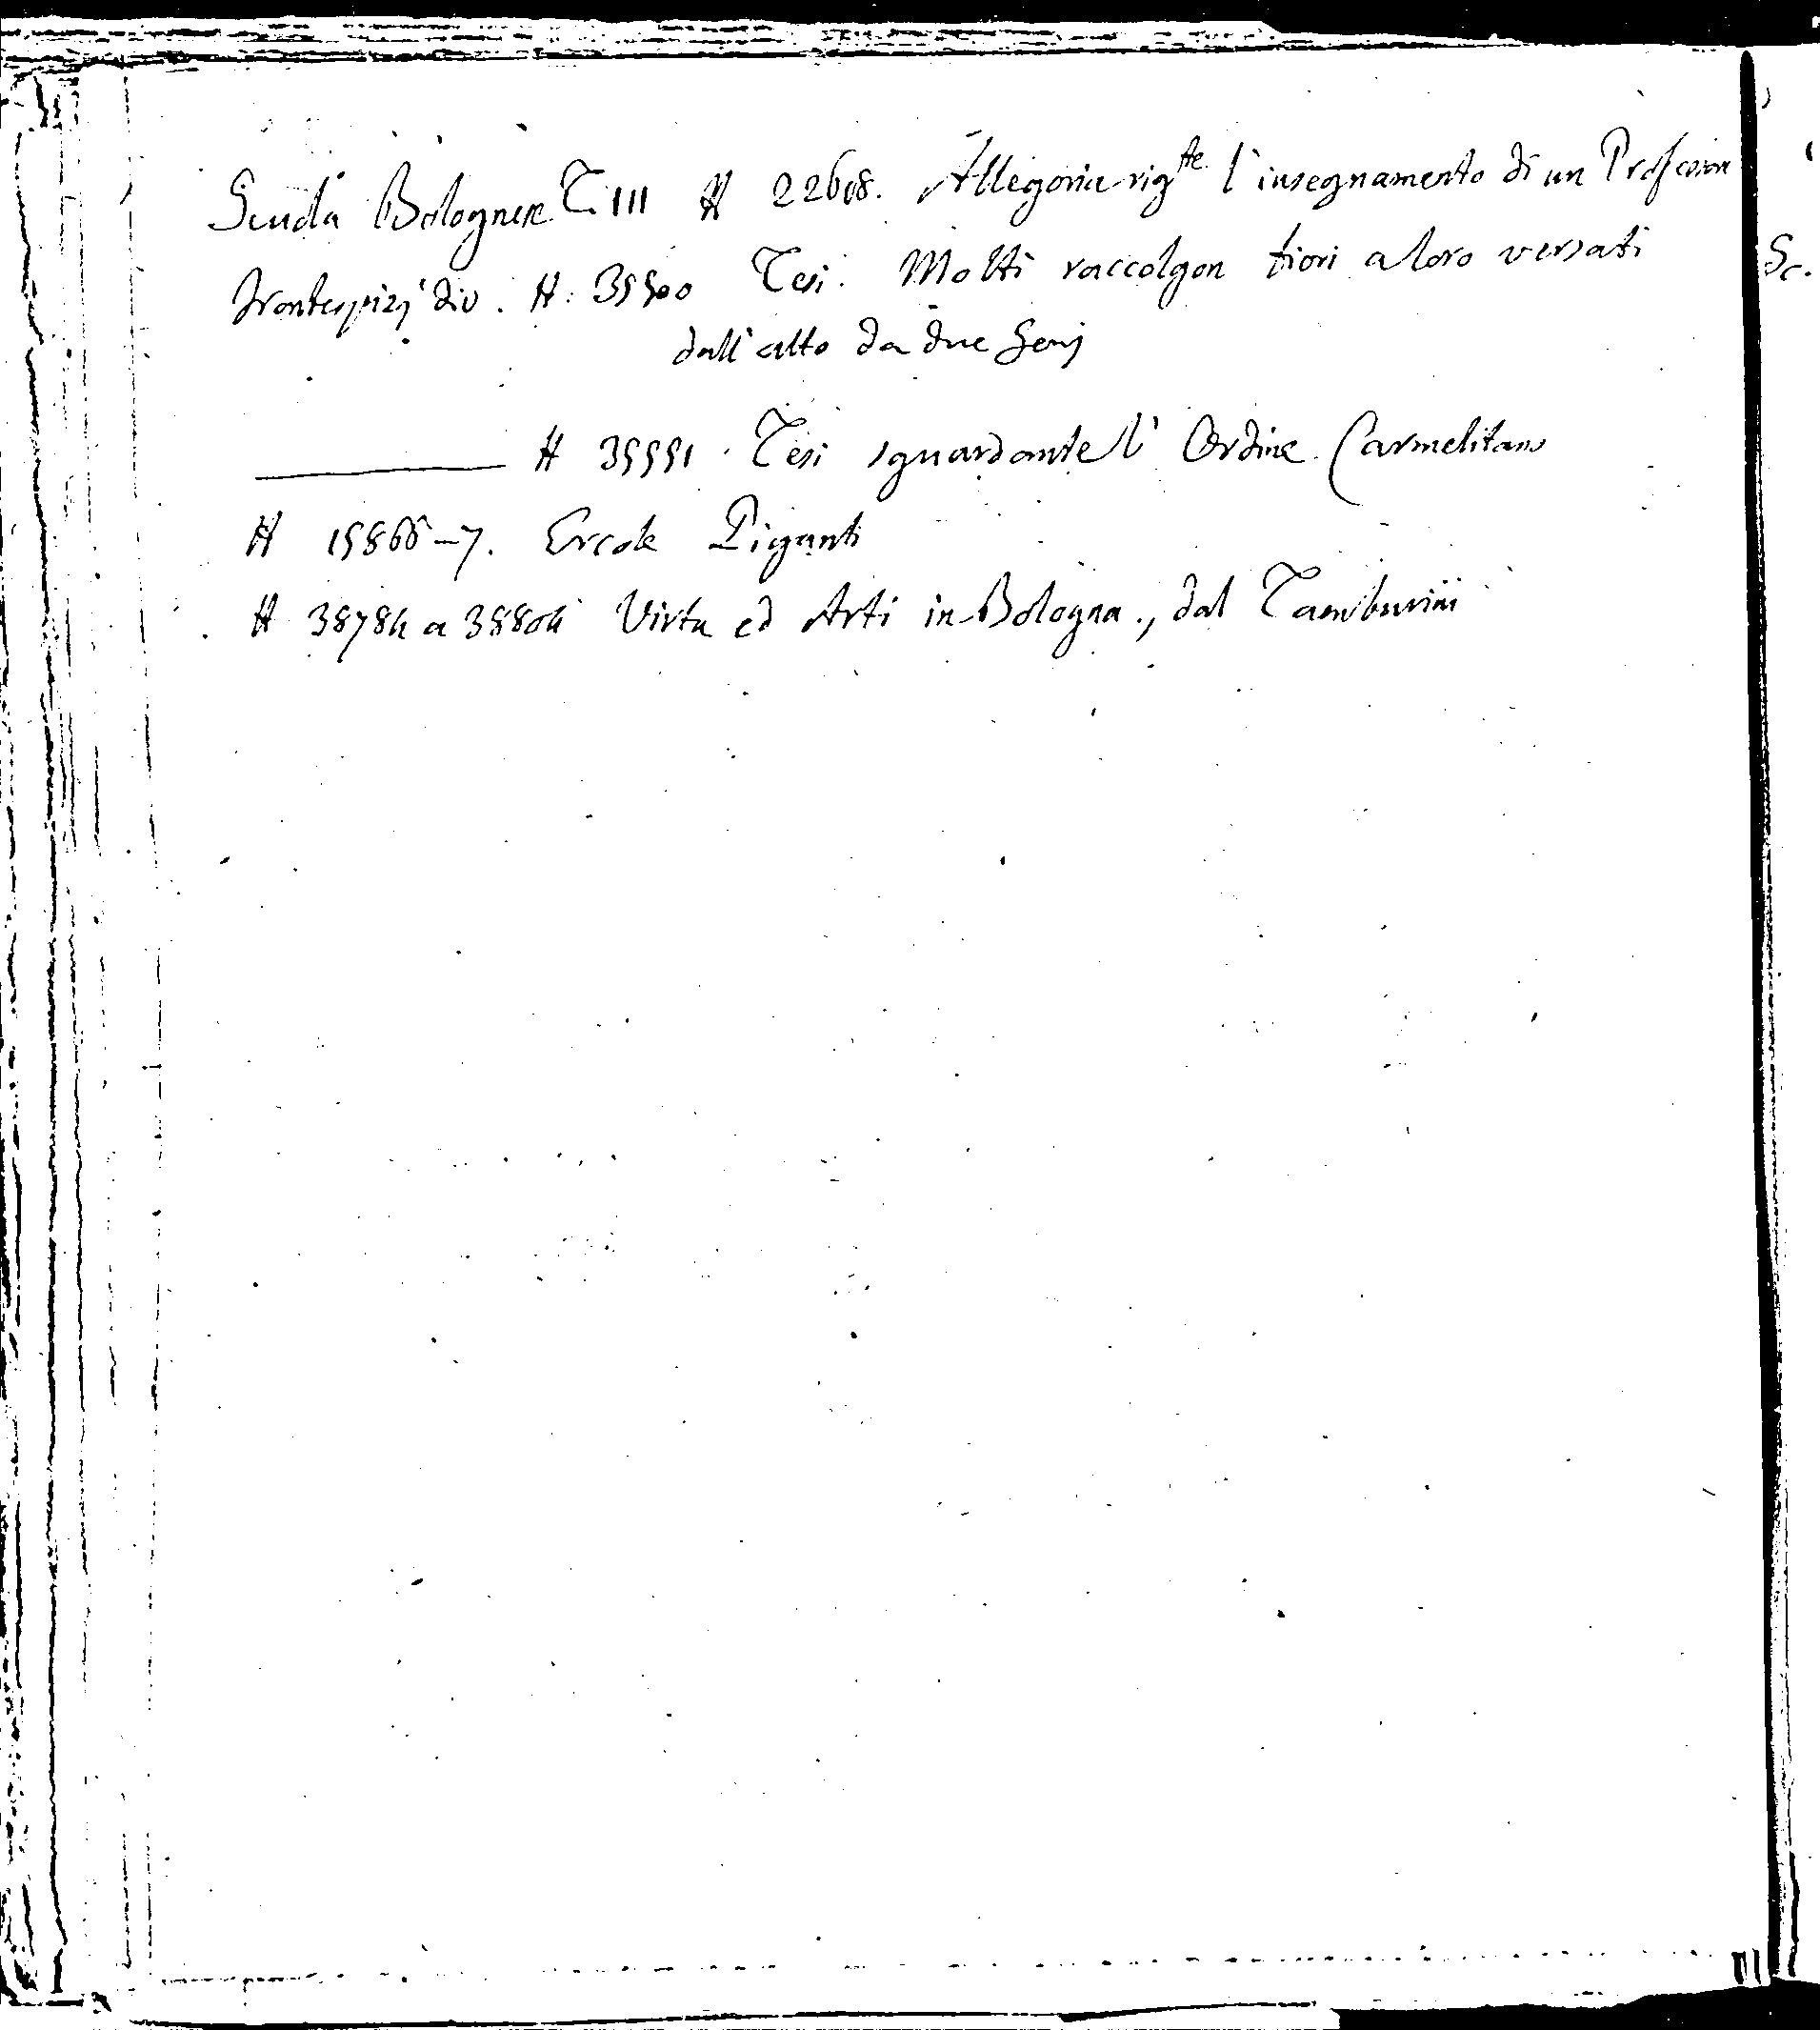 Scuola Bolognese T. III H 22608. Allegoria rig.te l'insegnamento di un Professore
Frontespizj div. H: 39900 Tesi. Molti raccolgon fiori a loro versati
dall'alto da due Genj
H 39991. Tesi sguardante l'Ordine Carmelitano
H 19866-7. Ercole Giganti
H 38784 a 38804 Virtu ed Arti in Bologna, dal Tamburini
Sc.